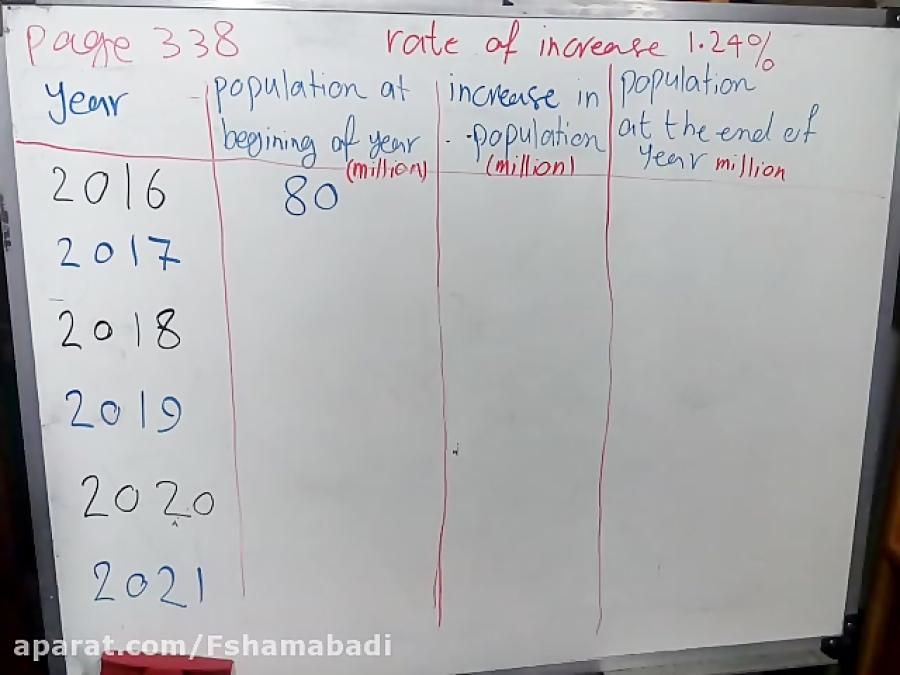 page 338 rate of increase 1.24%
year
population at
begining of year
(million)
increase in
population
(million)
population
at the end of
year million
2016 80
2017
2018
2019
2020
2021
aparat.com/Fshamabadi